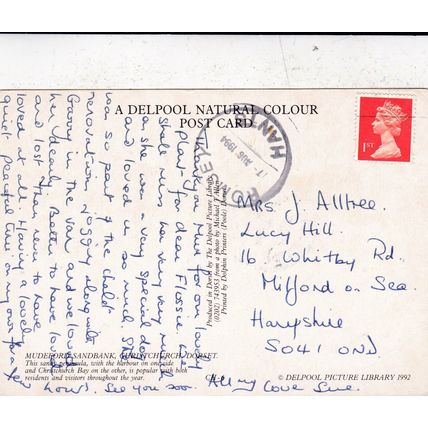 A DELPOOL NATURAL COLOUR
POST CARD
ROMSEY
HANTS
AUG 1994
1ST
Thank you Mum for an lovely
plant for dear Flossie. We
shall miss her very very much
as she was a very special dog
and loved in so
was so part of the chalet
renovation Joggy along with
Garry in the van and we loved
her dearly. Better to have loved
and lost than never to have
loved at all. Having a lovely
quiet peaceful time on my own for a few
hours. See you soon.
All my love Sue.
Mrs J. Alltree.
Lucy Hill.
16 Whitby Rd.
Milford on Sea.
Hampshire
SO41 0ND
Produced in Dorset by The Delpool Picture Library
(0202) 743953 from a photo by Michael J Allen
Printed by Dolphin Printers (Poole) Dorset
MUDEFORD SANDBANK, CHRISTCHURCH, DORSET.
This sandy peninsula, with the harbour on one side
and Christchurch Bay on the other, is popular with both
residents and visitors throughout the year.
© DELPOOL PICTURE LIBRARY 1992